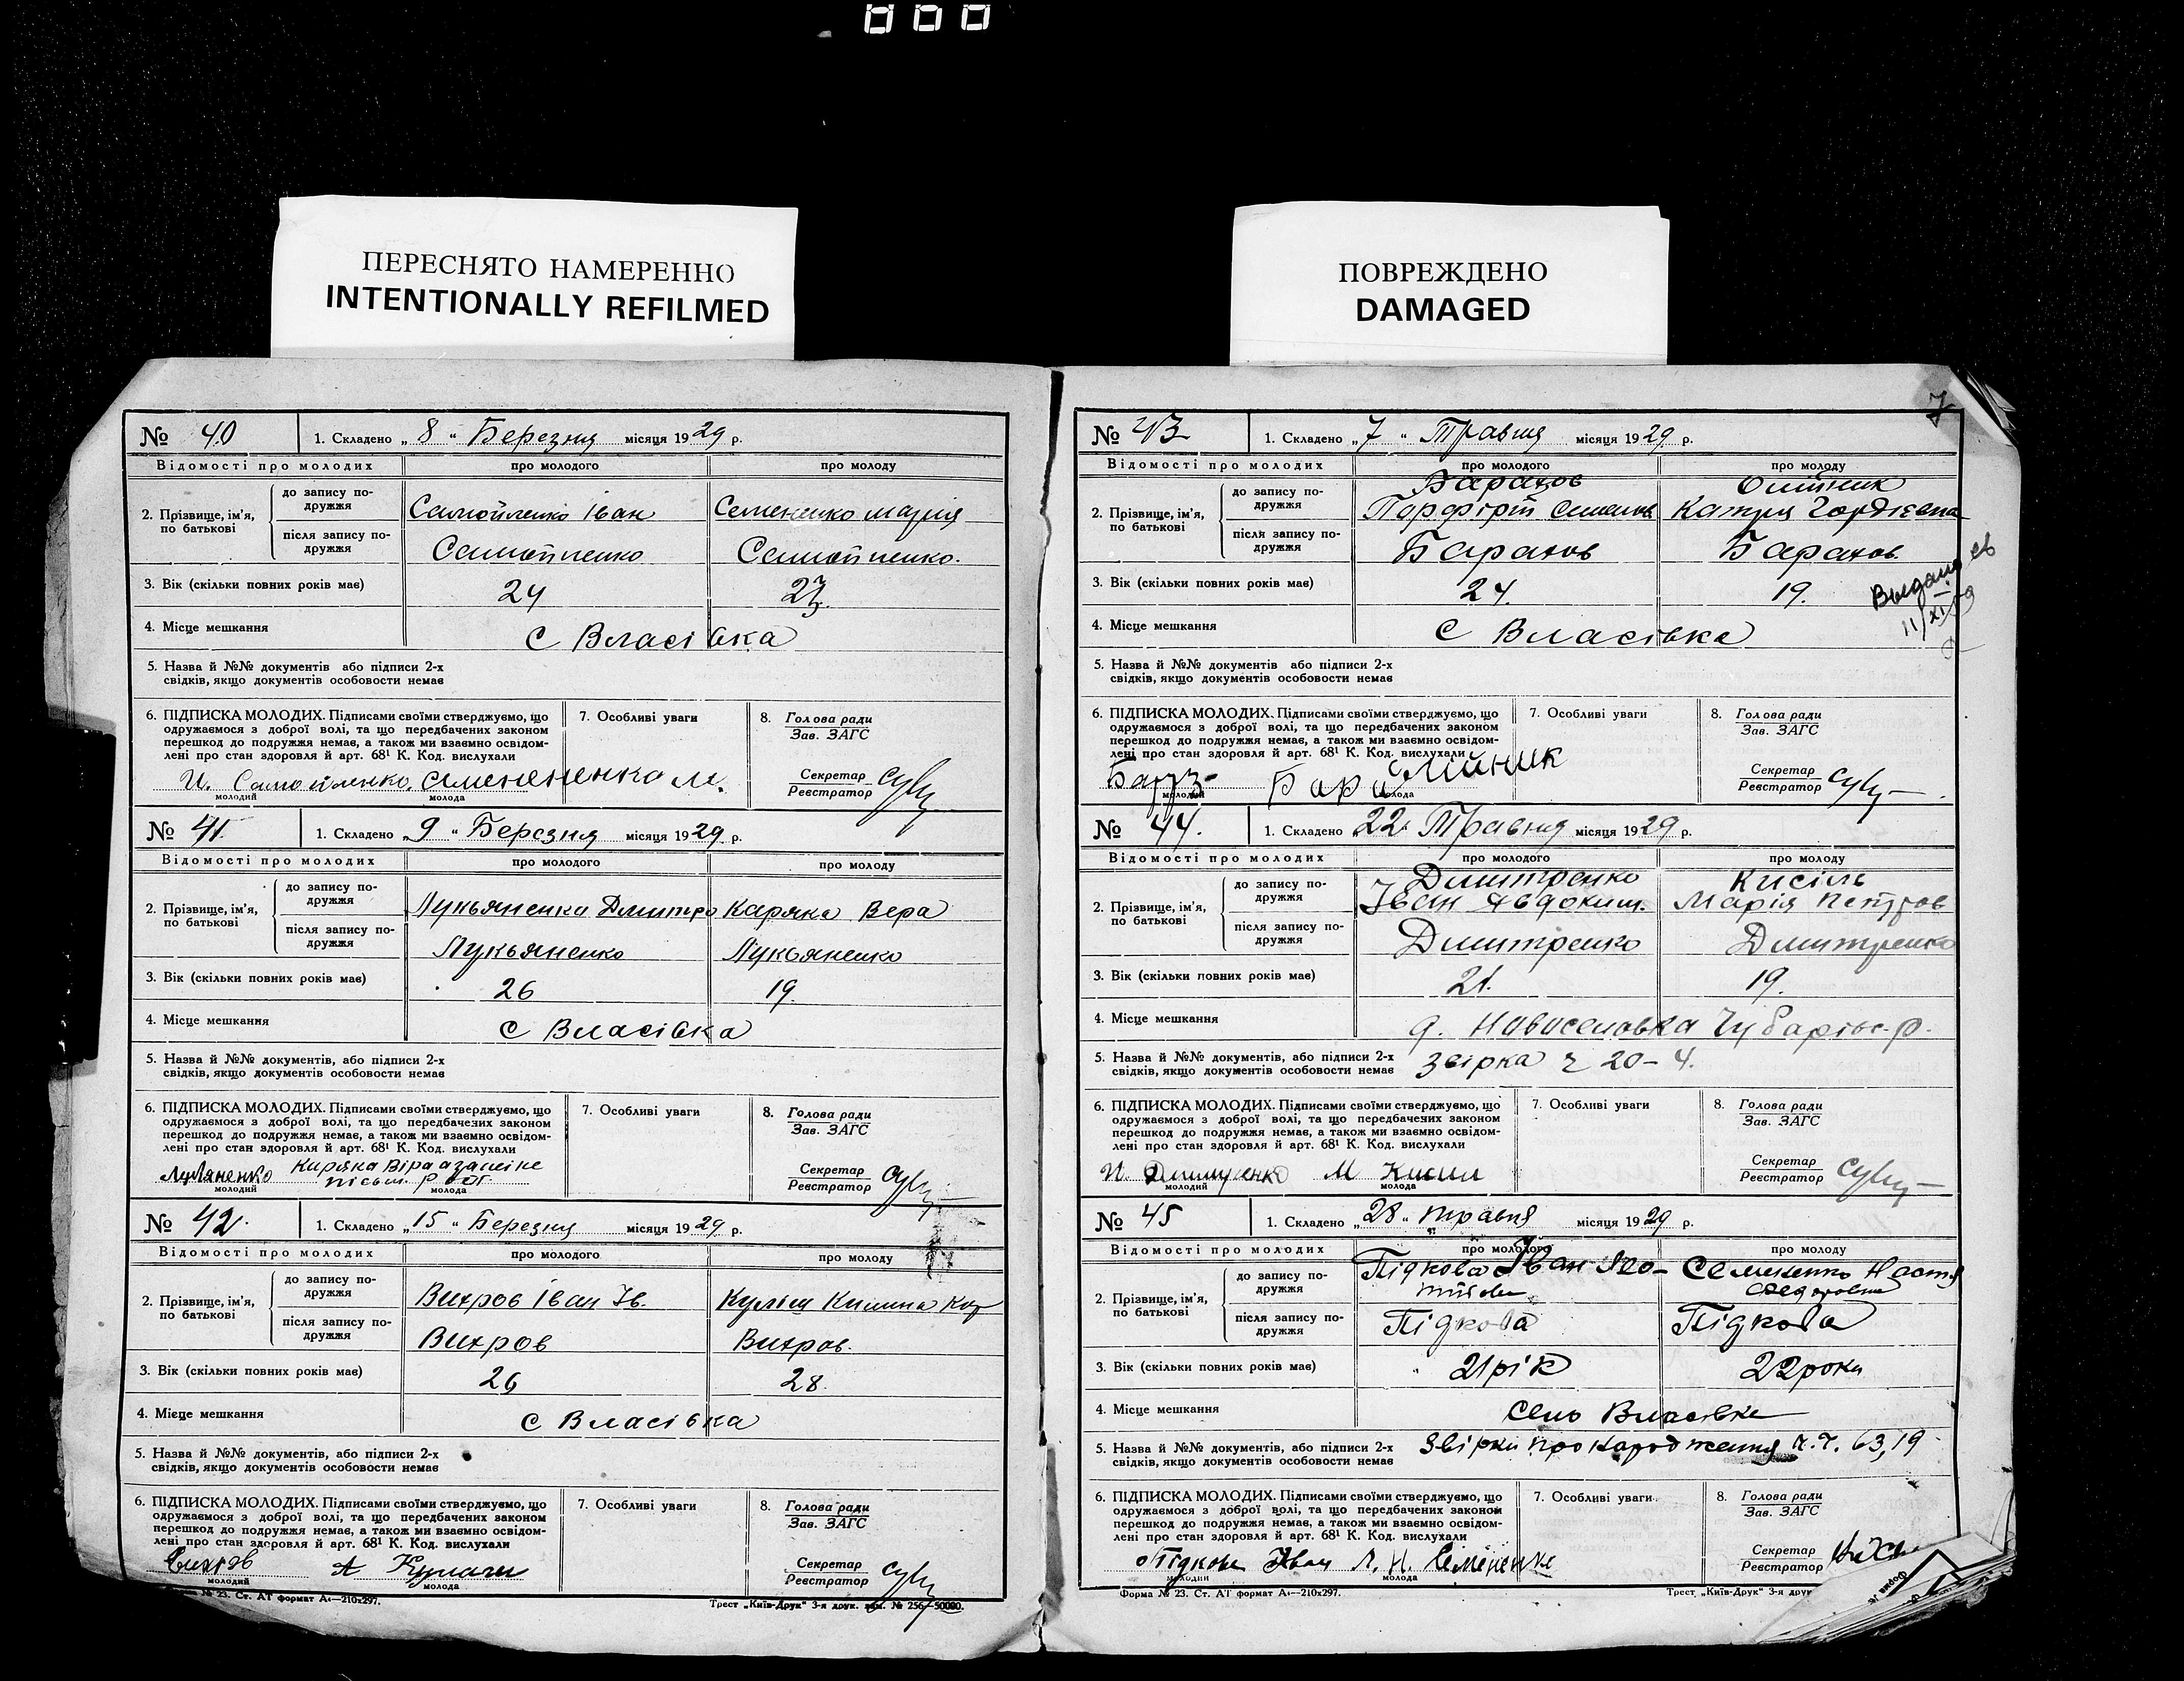 ПЕРЕСНЯТО НАМЕРЕННО
INTENTIONALLY REFILMED
ПОВРЕЖДЕНО
DAMAGED
№ 40 1. Складено „8“ Березня місяця 1929 р.
Відомості про молодих про молодого про молоду
2. Прізвище, ім'я, по батькові
до запису подружжя Самойленко Іван Семененко Марія
після запису подружжя Самойленко Самойленко.
3. Вік (скільки повних років має) 24 23.
4. Місце мешкання с Власівка
5. Назва й №№ документів або підписи 2-х
свідків, якщо документів особовости немає
6. ПІДПИСКА МОЛОДИХ. Підписами своїми стверджуємо, що
одружаємося з доброї волі, та що передбачених законом
перешкод до подружжя немає, а також ми взаємно освідом-
лені про стан здоровля й арт. 68¹ К. Код. вислухали
И. Самойленко.
молодий молода
7. Особливі уваги
8. Голова ради
Зав. ЗАГС
Секретар
Реєстратор
№ 41. 1. Складено „9“ Березня місяця 1929 р.
Відомості про молодих про молодого про молоду
2. Прізвище, ім'я, по батькові
до запису подружжя Лукьяненко Дмитро Каряка Вера
після запису подружжя Лукьяненко Лукьяненко
3. Вік (скільки повних років має) 26 19.
4. Місце мешкання с Власівка
5. Назва й №№ документів, або підписи 2-х
свідків, якщо документів особовости немає
6. ПІДПИСКА МОЛОДИХ. Підписами своїми стверджуємо, що
одружаємося з доброї волі, та що передбачених законом
перешкод до подружжя немає, а також ми взаємно освідом-
лені про стан здоровля й арт. 68¹ К. Код. вислухали
молодий молода
7. Особливі уваги
8. Голова ради
Зав. ЗАГС
Секретар
Реєстратор
№ 42. 1. Складено „15“ Березня місяця 1929 р.
Відомості про молодих про молодого про молоду
2. Прізвище, ім'я, по батькові
до запису подружжя Вихров Іван Ів.
після запису подружжя Вихров Вихров.
3. Вік (скільки повних років має) 26 28.
4. Місце мешкання с Власівка
5. Назва й №№ документів, або підписи 2-х
свідків, якщо документів особовости немає
6. ПІДПИСКА МОЛОДИХ. Підписами своїми стверджуємо, що
одружаємося з доброї волі, та що передбачених законом
перешкод до подружжя немає, а також ми взаємно освідом-
лені про стан здоровля й арт. 68¹ К. Код. вислухали
молодий молода
7. Особливі уваги
8. Голова ради
Зав. ЗАГС
Секретар
Реєстратор
№ 23. Ст. АТ формат А₄—210х297.
Трест „Київ-Друк“ 3-я друк. зам. № 256—50000.
7
№ 43 1. Складено „7“ Травня місяця 1929 р.
Відомості про молодих про молодого про молоду
2. Прізвище, ім'я, по батькові
до запису подружжя Барахов Олійник
Порфірій Катря Гордіевна
після запису подружжя Барахов Барахов
3. Вік (скільки повних років має) 24. 19.
Выдано св
11/XI 59
4. Місце мешкання с Власівка
5. Назва й №№ документів або підписи 2-х
свідків, якщо документів особовости немає
6. ПІДПИСКА МОЛОДИХ. Підписами своїми стверджуємо, що
одружаємося з доброї волі, та що передбачених законом
перешкод до подружжя немає, а також ми взаємно освідом-
лені про стан здоровля й арт. 68¹ К. Код. вислухали
молодий молода
7. Особливі уваги
8. Голова ради
Зав. ЗАГС
Секретар
Реєстратор
№ 44. 1. Складено 22 Травня місяця 1929 р.
Відомості про молодих про молодого про молоду
2. Прізвище, ім'я, по батькові
до запису подружжя Дмитренко Кисіль
Іван Явдоким. Марія Петров
після запису подружжя Дмитренко Дмитренко
3. Вік (скільки повних років має) 21. 19.
4. Місце мешкання Новоселовка
5. Назва й №№ документів, або підписи 2-х звірка 20-4.
свідків, якщо документів особовости немає
6. ПІДПИСКА МОЛОДИХ. Підписами своїми стверджуємо, що
одружаємося з доброї волі, та що передбачених законом
перешкод до подружжя немає, а також ми взаємно освідом-
лені про стан здоровля й арт. 68¹ К. Код. вислухали
молодий молода
7. Особливі уваги
8. Голова ради
Зав. ЗАГС
Секретар
Реєстратор
№ 45 1. Складено „28“ травня місяця 1929 р.
Відомості про молодих про молодого про молоду
2. Прізвище, ім'я, по батькові
до запису подружжя Підкова Іван Семененко Настя
Федоровна
після запису подружжя Підкова Підкова
3. Вік (скільки повних років має) 21 рік 22 роки
4. Місце мешкання село Власівка
5. Назва й №№ документів, або підписи 2-х звірки про народження ч.ч. 63, 19
свідків, якщо документів особовости немає
6. ПІДПИСКА МОЛОДИХ. Підписами своїми стверджуємо, що
одружаємося з доброї волі, та що передбачених законом
перешкод до подружжя немає, а також ми взаємно освідом-
лені про стан здоровля й арт. 68¹ К. Код. вислухали
Підкова Иван Н. Семененко
молодий молода
7. Особливі уваги
8. Голова ради
Зав. ЗАГС
Секретар
Реєстратор
Форма № 23. Ст. АТ формат А₄—210х297.
Трест „Київ-Друк“ 3-я
Форма